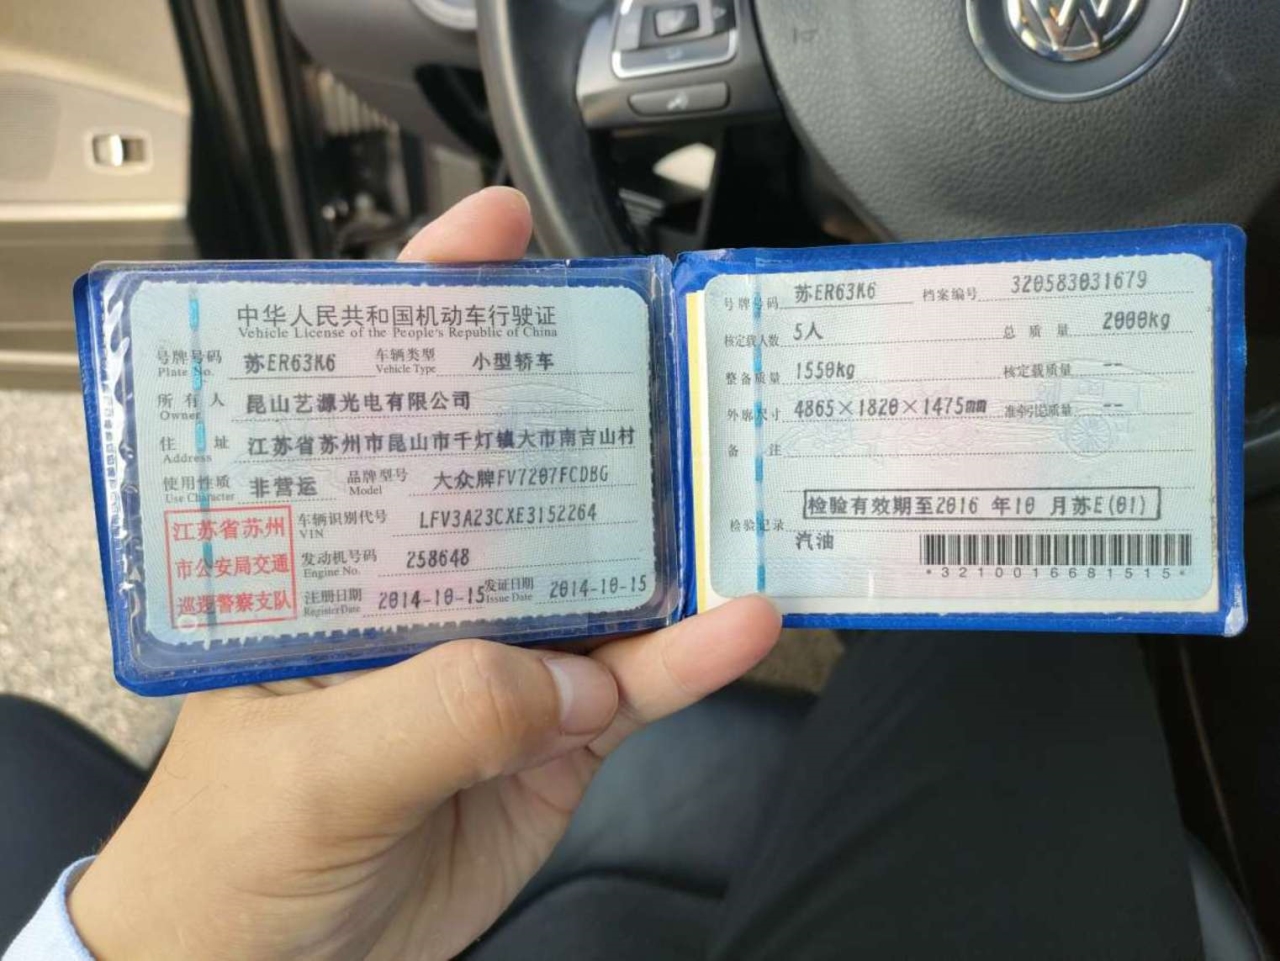 中华人民共和国机动车行驶证
Vehicle License of the People's Republic of China
号牌号码 苏ER63K6 车辆类型 小型轿车
Plate No. Vehicle Type
所有人 昆山艺源光电有限公司
Owner
住址 江苏省苏州市昆山市千灯镇大市南吉山村
Address
使用性质 非营运 品牌型号 大众牌FV7207FCDBG
Use Character Model
江苏省苏州
市公安局交通
巡逻警察支队
车辆识别代号 LFV3A23CXE3152264
VIN
发动机号码 258648
Engine No.
注册日期 2014-10-15 发证日期 2014-10-15
Register Date Issue Date
号牌号码 苏ER63K6 档案编号 320583031679
核定载人数 5人 总质量 2000kg
整备质量 1550kg 核定载质量 --
外廓尺寸 4865×1820×1475mm 准牵引总质量 --
备注
检验有效期至2016 年10 月苏E(01)
检验记录
汽油
*3210016681515*